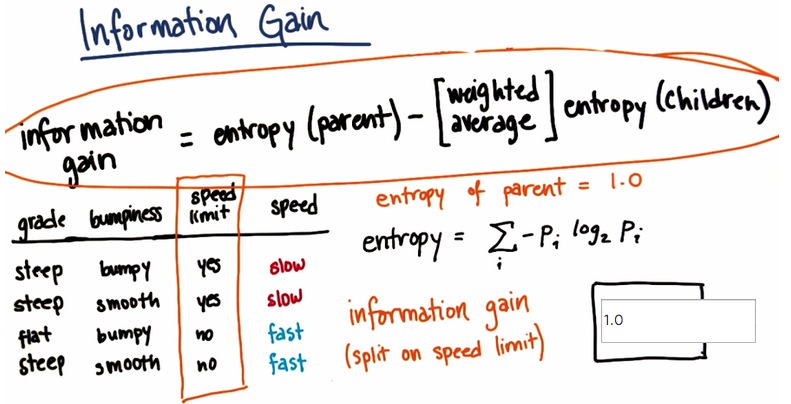 Information Gain
information gain = entropy (parent) - [weighted average] entropy (children)
entropy of parent = 1.0
entropy = Σ -Pi log2 Pi
i
grade bumpiness speed limit speed
steep bumpy yes slow
steep smooth yes slow
flat bumpy no fast
steep smooth no fast
information gain
(split on speed limit)
1.0